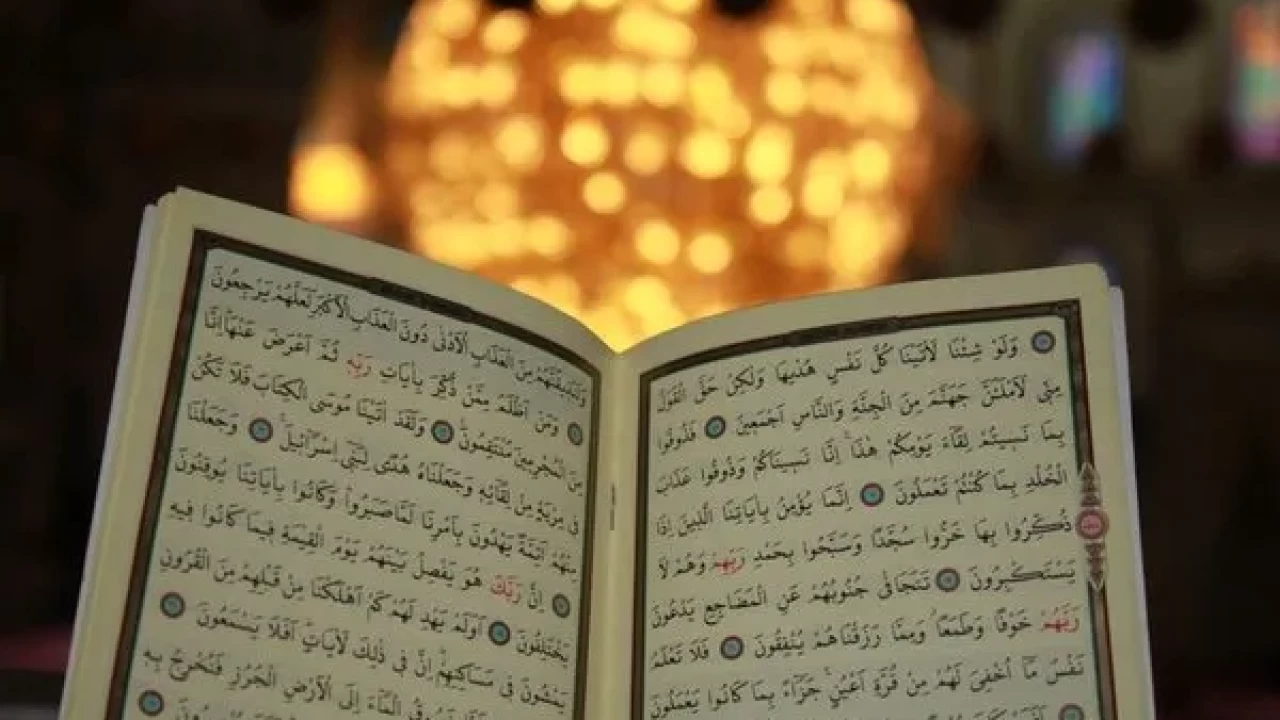 وَلَوْ شِئْنَا لَاٰتَيْنَا كُلَّ نَفْسٍ هُدٰيهَا وَلٰكِنْ حَقَّ الْقَوْلُ
مِنّٖى لَاَمْلَـَٔنَّ جَهَنَّمَ مِنَ الْجِنَّةِ وَالنَّاسِ اَجْمَعٖينَ فَذُوقُوا
بِمَا نَسٖيتُمْ لِقَٓاءَ يَوْمِكُمْ هٰذَا اِنَّا نَسٖينَاكُمْ وَذُوقُوا عَذَابَ
الْخُلْدِ بِمَا كُنْتُمْ تَعْمَلُونَ اِنَّمَا يُؤْمِنُ بِاٰيَاتِنَا الَّذٖينَ اِذَا
ذُكِّرُوا بِهَا خَرُّوا سُجَّدًا وَسَبَّحُوا بِحَمْدِ رَبِّهِمْ وَهُمْ لَا
يَسْتَكْبِرُونَ تَتَجَافٰى جُنُوبُهُمْ عَنِ الْمَضَاجِعِ يَدْعُونَ
رَبَّهُمْ خَوْفًا وَطَمَعًا وَمِمَّا رَزَقْنَاهُمْ يُنْفِقُونَ فَلَا تَعْلَمُ
نَفْسٌ مَٓا اُخْفِىَ لَهُمْ مِنْ قُرَّةِ اَعْيُنٍ جَزَٓاءً بِمَا كَانُوا يَعْمَلُونَ
وَلَنُذٖيقَنَّهُمْ مِنَ الْعَذَابِ الْاَدْنٰى دُونَ الْعَذَابِ الْاَكْبَرِ لَعَلَّهُمْ يَرْجِعُونَ
وَمَنْ اَظْلَمُ مِمَّنْ ذُكِّرَ بِاٰيَاتِ رَبِّهٖ ثُمَّ اَعْرَضَ عَنْهَا اِنَّا
مِنَ الْمُجْرِمٖينَ مُنْتَقِمُونَ وَلَقَدْ اٰتَيْنَا مُوسَى الْكِتَابَ فَلَا تَكُنْ
فٖى مِرْيَةٍ مِنْ لِقَٓائِهٖ وَجَعَلْنَاهُ هُدًى لِبَنٖٓى اِسْرَٓائٖلَ وَجَعَلْنَا
مِنْهُمْ اَئِمَّةً يَهْدُونَ بِاَمْرِنَا لَمَّا صَبَرُوا وَكَانُوا بِاٰيَاتِنَا يُوقِنُونَ
اِنَّ رَبَّكَ هُوَ يَفْصِلُ بَيْنَهُمْ يَوْمَ الْقِيٰمَةِ فٖيمَا كَانُوا فٖيهِ
يَخْتَلِفُونَ اَوَلَمْ يَهْدِ لَهُمْ كَمْ اَهْلَكْنَا مِنْ قَبْلِهِمْ مِنَ الْقُرُونِ
يَمْشُونَ فٖى مَسَاكِنِهِمْ اِنَّ فٖى ذٰلِكَ لَاٰيَاتٍ اَفَلَا يَسْمَعُونَ
الْمَٓاءَ اِلَى الْاَرْضِ الْجُرُزِ فَنُخْرِجُ بِهٖ